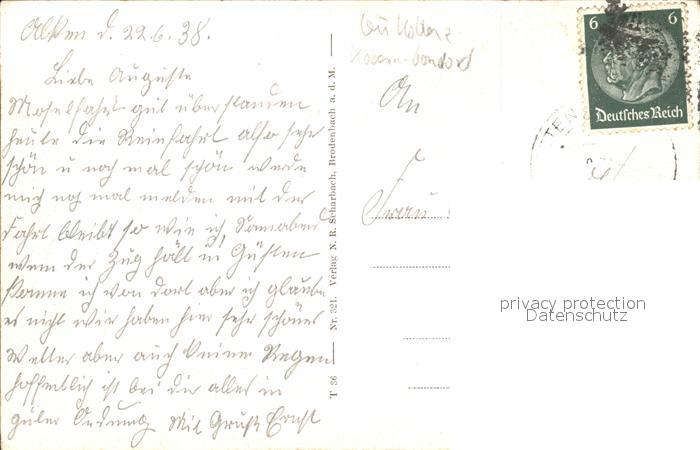 Alken d. 22.6.38.
Liebe Auguste
Moselfahrt gut überstanden
heute die Reinfahrt also sehr
schön u noch mal schön werde
mich noch mal melden mit der
Fahrt bleibt so wie ich Sonnabend
wenn der Zug hält in Güsten
komme ich von dort aber ich glaube
es nicht wir haben hier sehr schönes
Wetter aber auch keinen Regen
hoffentlich ist bei dir alles in
guter Ordnung Mit Gruß Ernst
T 36 Nr. 321. Verlag N. R. Scharbach, Brodenbach a. d. M.
An
Frau
6 6
Deutsches Reich
privacy protection
Datenschutz